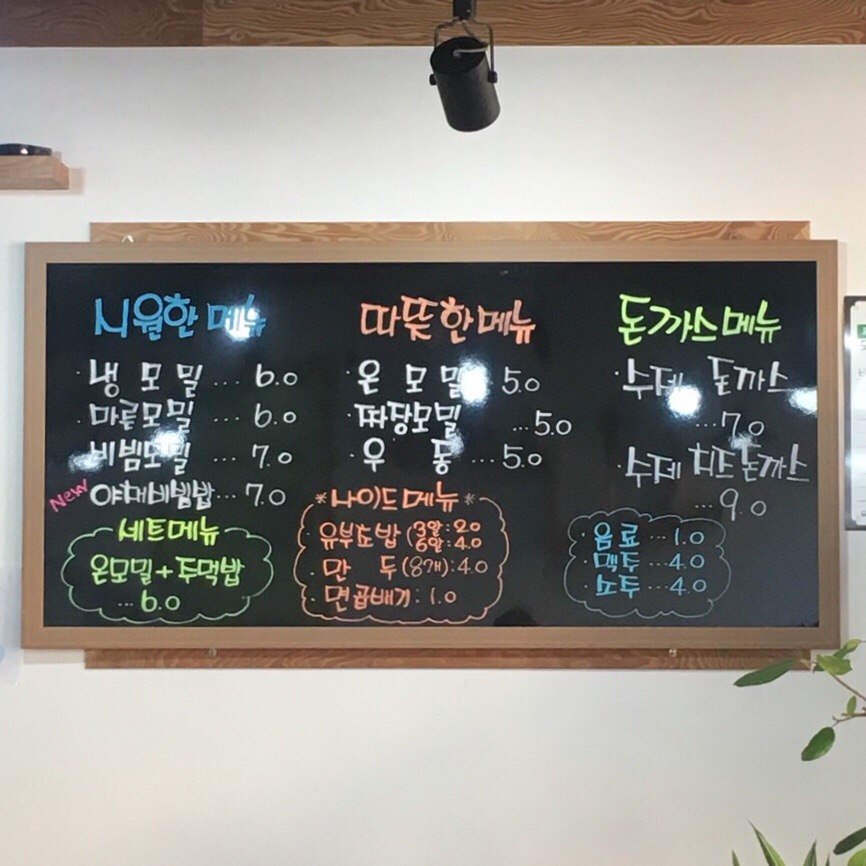 시원한 메뉴
· 냉 모 밀 ... 6.0
· 마른모밀 ... 6.0
· 비빔모밀 ... 7.0
New 야채비빔밥 ... 7.0
세트메뉴
온모밀+주먹밥
... 6.0
따뜻한 메뉴
· 온 모 밀 5.0
· 짜장모밀
... 5.0
· 우 동 ... 5.0
*사이드메뉴*
유부초밥 (3알:2.0
6알:4.0
만 두 (8개):4.0
면곱배기:1.0
돈까스 메뉴
· 수제 돈까스
... 7.0
· 수제 치즈돈까스
... 9.0
음료 ... 1.0
맥주 ... 4.0
소주 ... 4.0